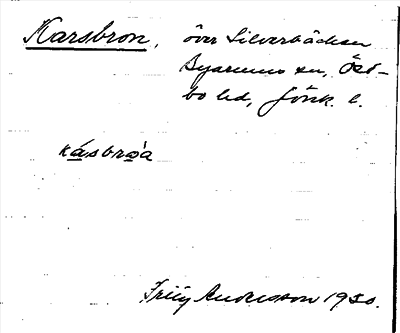 Karsbron, över Silverbäcken
Byarums sn, Öst-
bo hd, Jönk. l.
kásbròa
Andersson 1930.